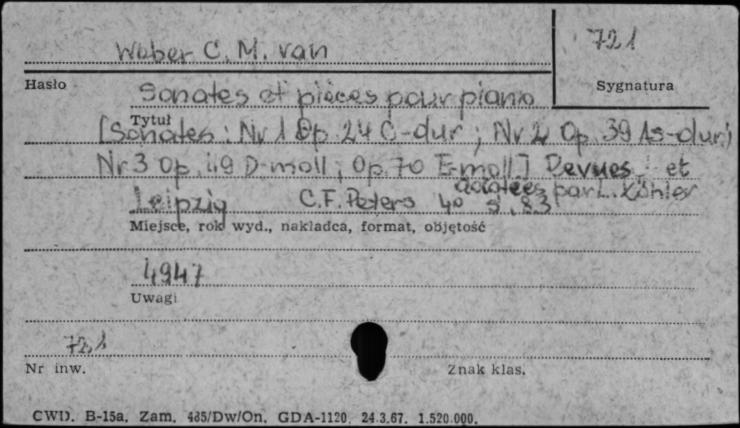 Weber C. M. van
721
Hasło
Sygnatura
Sonates et pièces pour piano
Tytuł
[Sonates: Nr 1 Op. 24 C-dur; Nr 2 Op. 39 As-dur;
Nr 3 Op. 49 D-moll; Op. 70 E-moll.] Revues et
doigtées par L. Köhler
Leipzig C.F. Peters 4° s. 83
Miejsce, rok wyd., nakładca, format, objętość
4947
Uwagi
721
Nr inw.
Znak klas.
CWD. B-15a. Zam. 485/Dw/On. GDA-1120. 24.3.67. 1.520.000.